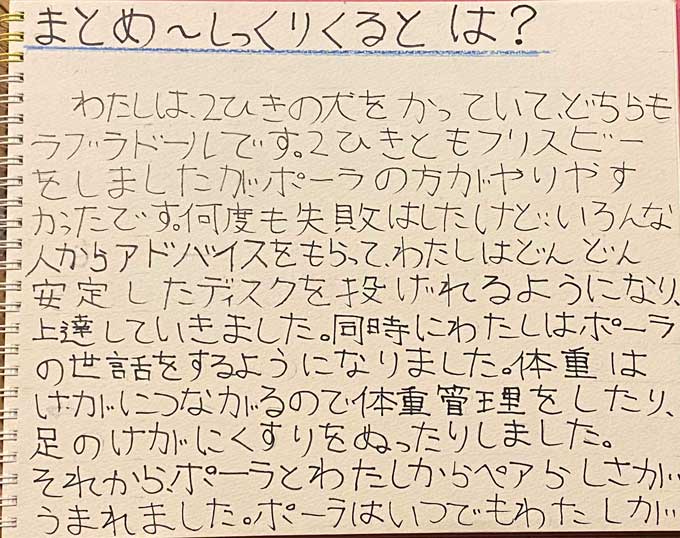 まとめ~しっくりくるとは?
わたしは、2ひきの犬をかっていて、どちらも
ラブラドールです。2ひきともフリスビー
をしましたがポーラの方がやりやす
かったです。何度も失敗はしたけど、いろんな
人からアドバイスをもらって、わたしはどんどん
安定したディスクを投げれるようになり、
上達していきました。同時にわたしはポーラ
の世話をするようになりました。体重は
けがにつながるので体重管理をしたり、
足のけがにくすりをぬったりしました。
それから、ポーラとわたしからペアらしさが
うまれました。ポーラはいつでもわたしが